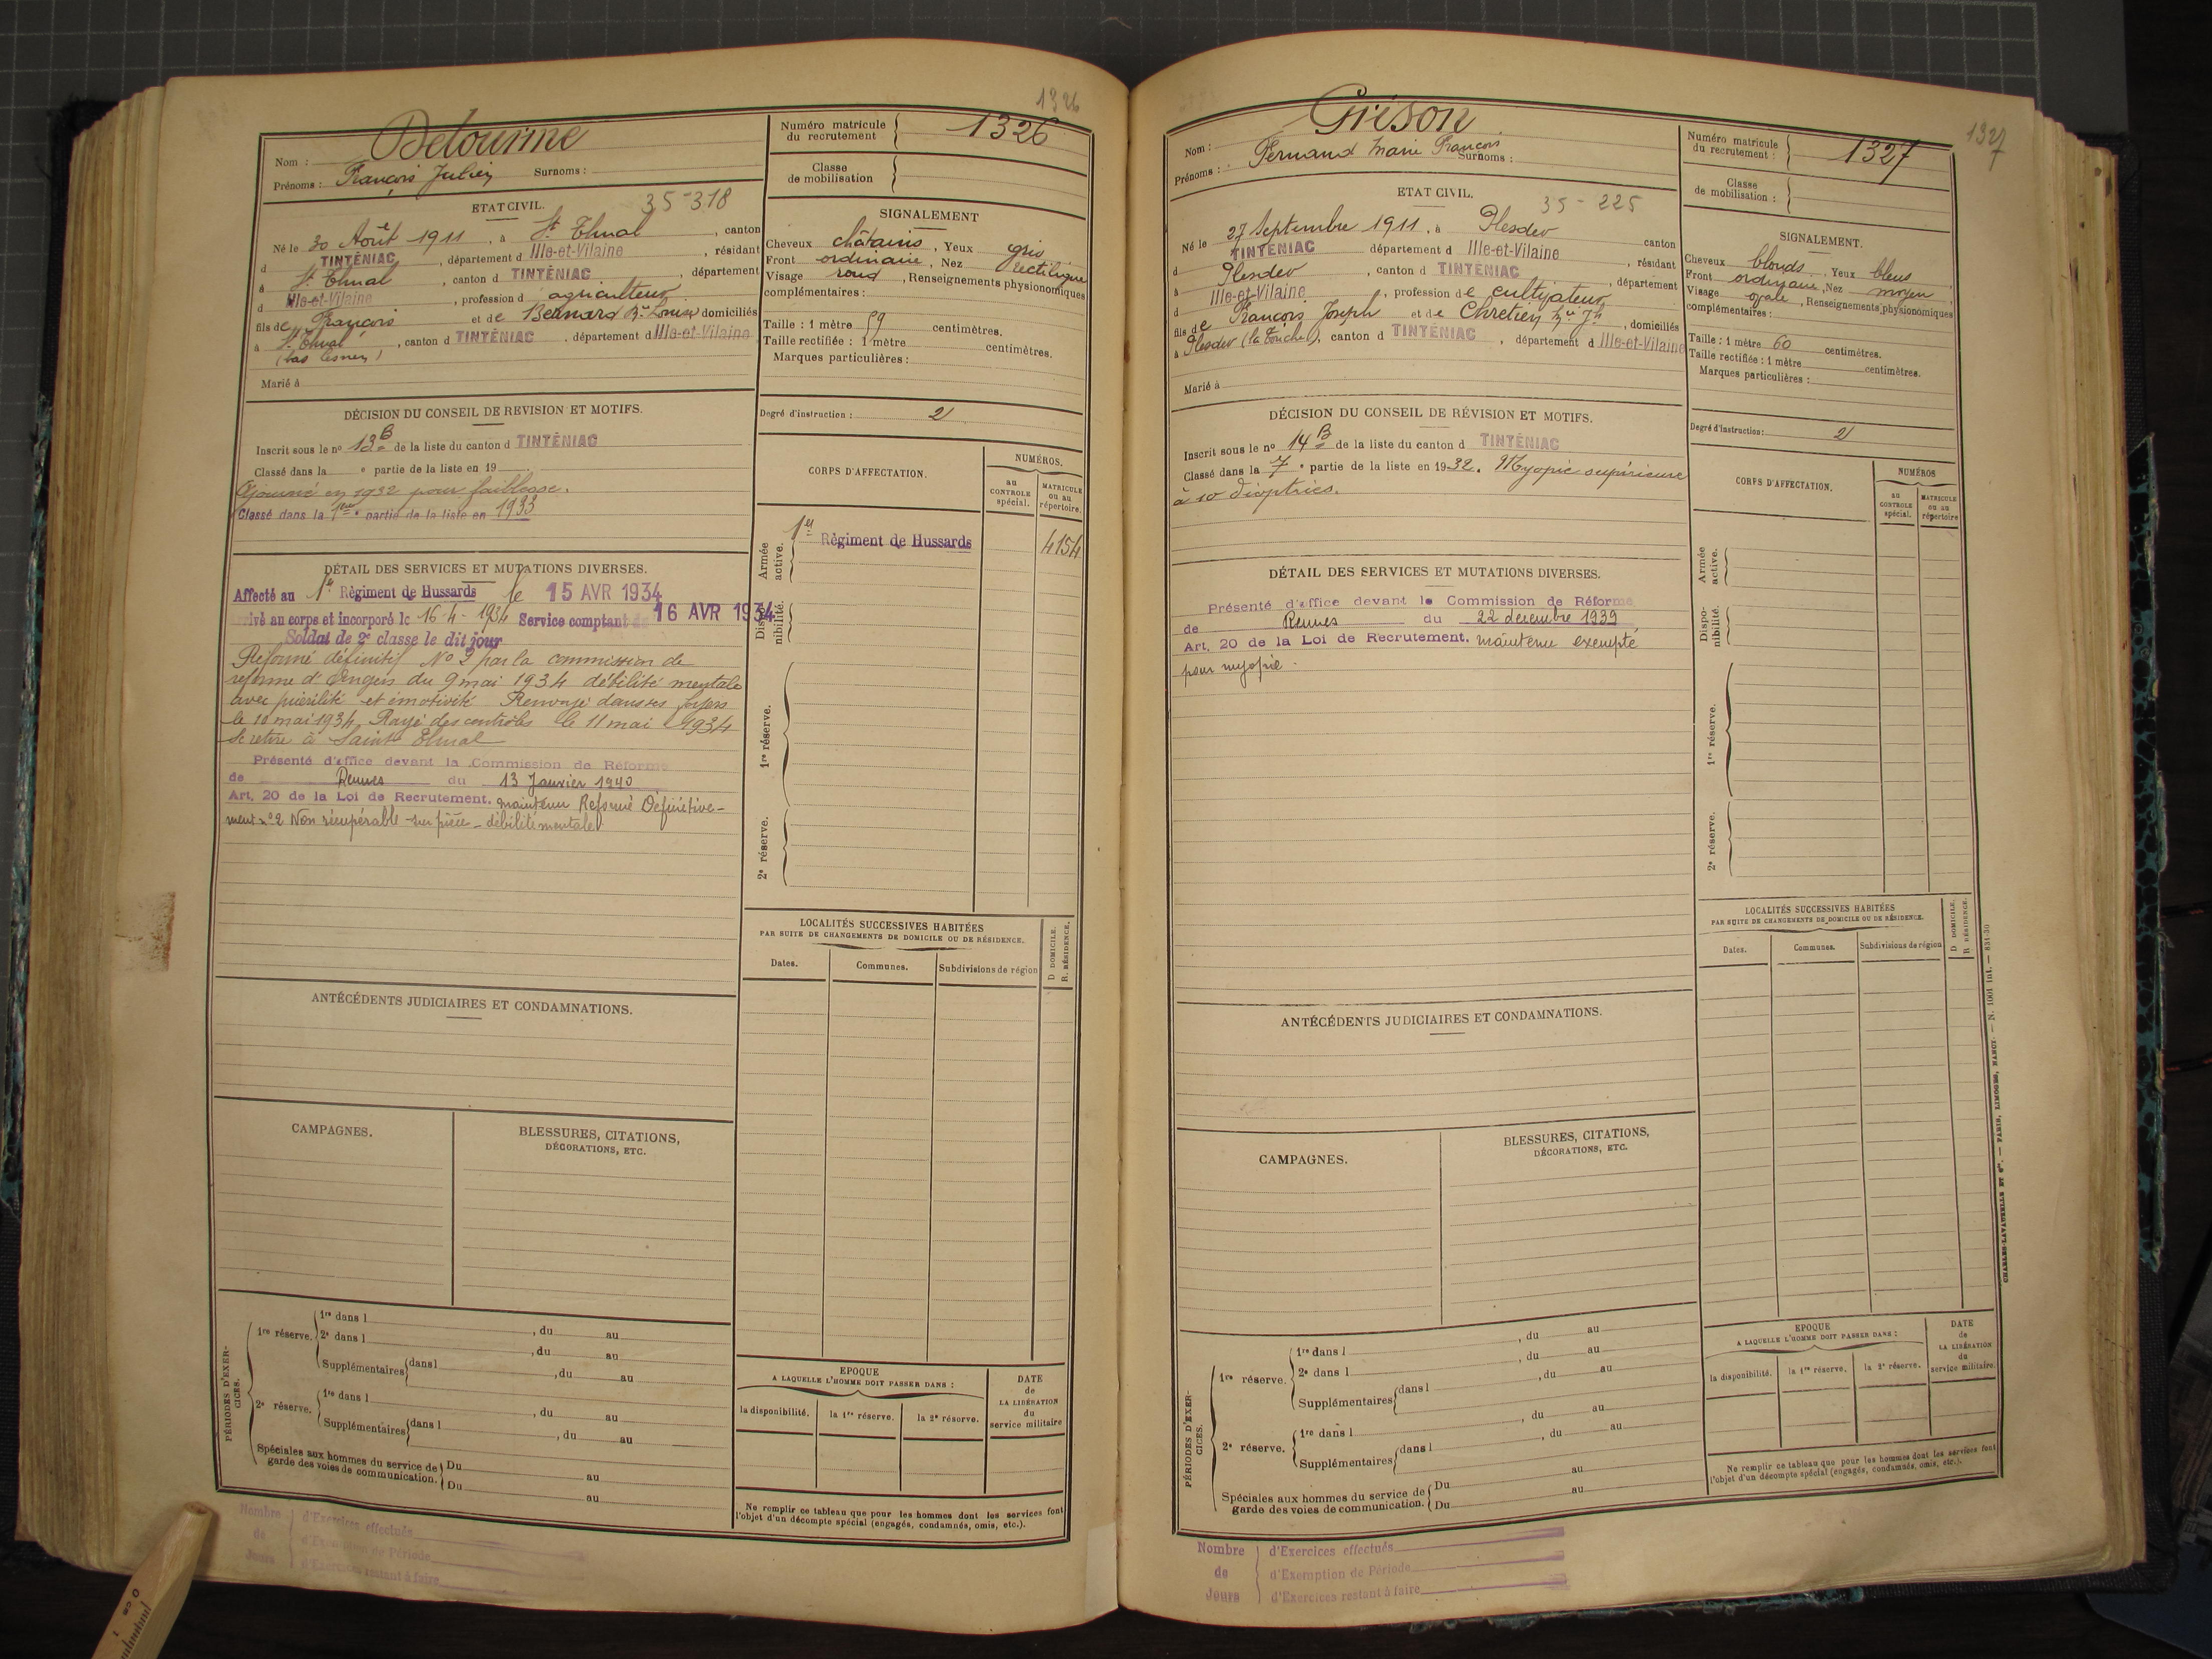 1326
Nom : Delourme
Prénoms : François Julien Surnoms :
Numéro matricule du recrutement 1326
Classe de mobilisation
ETAT CIVIL.
35-318
Né le 30 Août 1911, à St Thual, canton
d TINTÉNIAC, département d Ille-et-Vilaine, résidant
à St Thual, canton d TINTÉNIAC, département
d Ille-et-Vilaine, profession d agriculteur
fils de François et de Bernard domiciliés
à St Thual, canton d TINTÉNIAC, département d Ille-et-Vilaine
Marié à
SIGNALEMENT
Cheveux châtains, Yeux gris
Front ordinaire, Nez rectiligne
Visage rond, Renseignements physionomiques
complémentaires :
Taille : 1 mètre 59 centimètres.
Taille rectifiée : 1 mètre centimètres.
Marques particulières :
Degré d'instruction : 2
DÉCISION DU CONSEIL DE REVISION ET MOTIFS.
Inscrit sous le no 13 B de la liste du canton d TINTÉNIAC
Classé dans la e partie de la liste en 19
Ajourné en 1932 pour faiblesse.
Classé dans la 1ère partie de la liste en 1933
CORPS D'AFFECTATION.
NUMÉROS.
au CONTROLE spécial.
MATRICULE ou au répertoire.
Armée active.
1er Régiment de Hussards 4154
Disponibilité.
1re réserve.
2e réserve.
DÉTAIL DES SERVICES ET MUTATIONS DIVERSES.
Affecté au 1er Régiment de Hussards le 15 AVR 1934
rivé au corps et incorporé le 16-4-1934 Service comptant du 16 AVR 1934
Soldat de 2e classe le dit jour
Réformé définitif No 2 par la commission de
réforme d'Angers du 9 mai 1934 débilité mentale
avec puérilité et émotivité Renvoyé dans ses foyers
le 10 mai 1934. Rayé des contrôles le 11 mai 1934
Se retire à Saint Thual
Présenté d'office devant la Commission de Réforme
de Rennes du 13 Janvier 1940
Art. 20 de la Loi de Recrutement. maintenu Réformé Définitive-
ment no 2 Non récupérable - sur pièce - débilité mentale
LOCALITÉS SUCCESSIVES HABITÉES
PAR SUITE DE CHANGEMENTS DE DOMICILE OU DE RÉSIDENCE.
Dates. Communes. Subdivisions de région
D DOMICILE. R. RÉSIDENCE.
ANTÉCÉDENTS JUDICIAIRES ET CONDAMNATIONS.
CAMPAGNES.
BLESSURES, CITATIONS,
DÉCORATIONS, ETC.
PÉRIODES D'EXERCICES.
1re réserve. 1re dans l , du au
2e dans l , du au
Supplémentaires dans l , du au
2e réserve. 1re dans l , du au
Supplémentaires dans l , du au
Spéciales aux hommes du service de Du au
garde des voies de communication. Du au
EPOQUE
A LAQUELLE L'HOMME DOIT PASSER DANS :
la disponibilité. la 1re réserve. la 2e réserve.
DATE de LA LIBÉRATION du service militaire
Ne remplir ce tableau que pour les hommes dont les services font
l'objet d'un décompte spécial (engagés, condamnés, omis, etc.).
Nombre de Jours
d'Exercices effectués
d'Exemption de Période
d'Exercices restant à faire
1327
Nom : Grison
Prénoms : Fernand Marie François Surnoms :
Numéro matricule du recrutement : 1327
Classe de mobilisation :
ETAT CIVIL.
35-225
Né le 27 Septembre 1911, à Plesder canton
d TINTÉNIAC département d Ille-et-Vilaine, résidant
à Plesder, canton d TINTÉNIAC, département
d Ille-et-Vilaine, profession de cultivateur
fils de François Joseph et de Chrétien, domiciliés
à Plesder (la Touche), canton d TINTÉNIAC, département d Ille-et-Vilaine
Marié à
SIGNALEMENT.
Cheveux blonds, Yeux bleus
Front ordinaire, Nez moyen
Visage ovale, Renseignements physionomiques
complémentaires :
Taille : 1 mètre 60 centimètres.
Taille rectifiée : 1 mètre centimètres.
Marques particulières :
Degré d'instruction : 2
DÉCISION DU CONSEIL DE RÉVISION ET MOTIFS.
Inscrit sous le no 14 B de la liste du canton d TINTÉNIAC
Classé dans la 7e partie de la liste en 1932. Myopie supérieure
à 10 dioptries.
CORPS D'AFFECTATION.
NUMÉROS
au CONTROLE spécial.
MATRICULE ou au répertoire
Armée active.
Disponibilité.
1re réserve.
2e réserve.
DÉTAIL DES SERVICES ET MUTATIONS DIVERSES.
Présenté d'office devant la Commission de Réforme
de Rennes du 22 décembre 1939
Art. 20 de la Loi de Recrutement. maintenu exempté
pour myopie.
LOCALITÉS SUCCESSIVES HABITÉES
PAR SUITE DE CHANGEMENTS DE DOMICILE OU DE RÉSIDENCE.
Dates. Communes. Subdivisions de région
D DOMICILE. R RÉSIDENCE.
ANTÉCÉDENTS JUDICIAIRES ET CONDAMNATIONS.
CAMPAGNES.
BLESSURES, CITATIONS,
DÉCORATIONS, ETC.
PÉRIODES D'EXERCICES.
1re réserve. 1re dans l , du au
2e dans l , du au
Supplémentaires dans l , du au
2e réserve. 1re dans l , du au
Supplémentaires dans l , du au
Spéciales aux hommes du service de Du au
garde des voies de communication. Du au
EPOQUE
A LAQUELLE L'HOMME DOIT PASSER DANS :
la disponibilité. la 1re réserve. la 2e réserve.
DATE de LA LIBÉRATION du service militaire.
Ne remplir ce tableau que pour les hommes dont les services font
l'objet d'un décompte spécial (engagés, condamnés, omis, etc.).
CHARLES-LAVAUZELLE ET Cie. — PARIS, LIMOGES, NANCY. — N. 1001 int. — 831-30
Nombre de Jours
d'Exercices effectués
d'Exemption de Période
d'Exercices restant à faire
0 cm 1